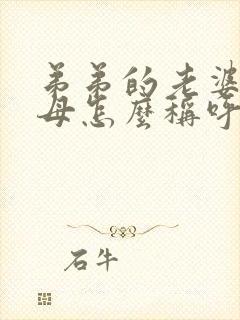 弟弟的老婆
母怎麼稱呼
石牛